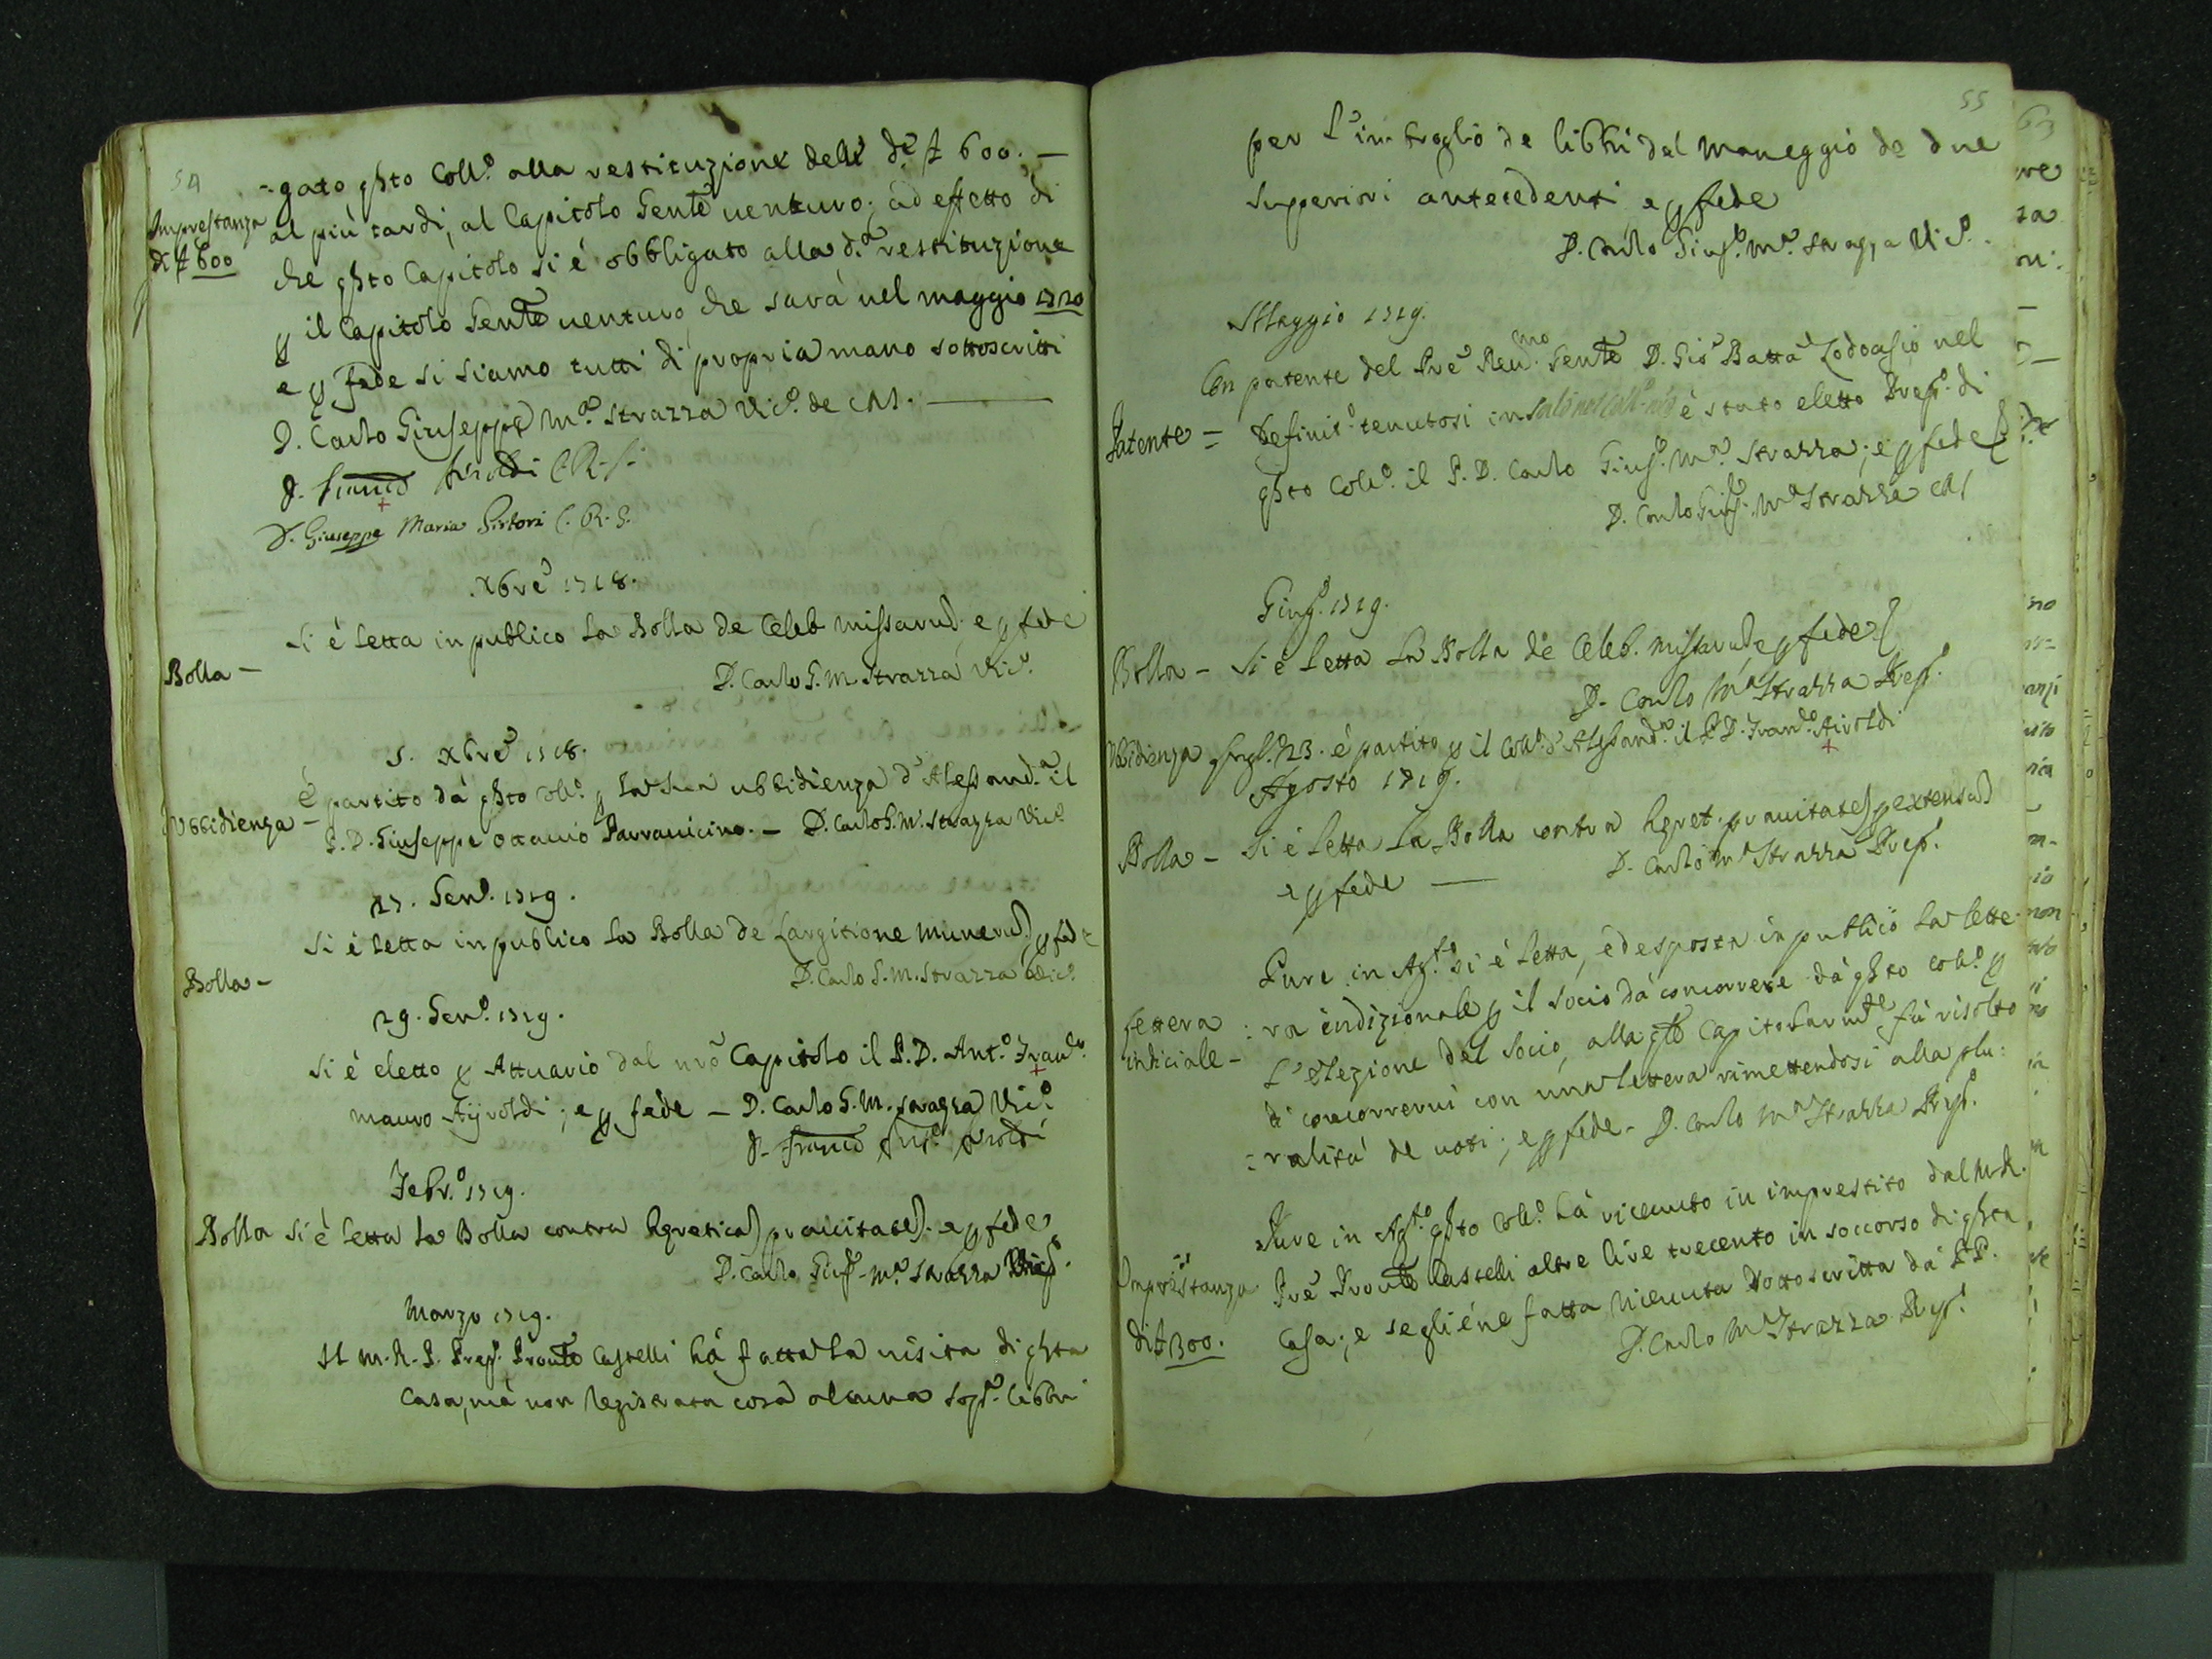 54
-gato qsto Coll.o alla restituzione delle d.e £ 600. —
Imprestanza
di £ 600
al più tardi, al Capitolo Gentē uenturo; ad effetto di
che qsto Capitolo si è obbligato alla d.a restituzione
p il Capitolo Gentē uenturo, che sarà nel maggio 1720
e p fede si siamo tutti di propria mano sottoscritti
D. Carlo Giuseppe M.a Strazza Vic.o de CRS. —
D. Franco Airoldi C.R.S.
D. Giuseppe Maria Sirtori C.R.S.
Xbre 1718.
Bolla —
Si è letta in publico la Bolla de Celeb missarud. e p fede
D. Carlo G. M. Strazza Vic.o
5. Xbre 1718.
Vbbidienza —
È partito dà qsto Coll.o p la sua ubbidienza d'Alessand.a il
P. D. Giuseppe Ottauio Parrauicino. — D. Carlo G. M. Strazza Vic.o
27. Gen.o 1719.
Bolla —
Si è letta in publico la Bolla de Largitione munerud p fede
D. Carlo G. M. Strazza Vic.o
29. Gen.o 1719.
Si è eletto p Attuario dal nrō Capitolo il P. D. Ant.o Fran.co
mauro Ayroldi; e p fede — D. Carlo G. M. Strazza Vic.o
D. Franco Ant.o Airoldi
Febr.o 1719.
Bolla Si è letta la Bolla contra heretica prauitate. e p fede
D. Carlo Gius.e M.a Strazza
Marzo 1719.
Il M. R. P. Prep. Prontē Castelli hà fatta la uisita di qsta
Casa, mà non legistrata cosa alcuna sop.a libbri
55
per l'imbroglio de libbri del maneggio de due
Superiori antecedenti e p fede
D. Carlo Gius.e M.a Strazza Vic.o
Maggio 1719.
Patente =
Con patente del Pre Reu.mo Gentē D. Gio Batta Lodoasio nel
Definit.o tenutosi in è stato eletto Prep.o di
qsto Coll.o il P. D. Carlo Gius.e M.a Strazza; e p fede
D. Carlo Gius.e M.a Strazza CRS
Giug.o 1719.
Bolla — Si è letta la Bolla de Celeb. missarud e p fede
D. Carlo M.a Strazza Prep.o
Vbbidienza 23. è partito p il Coll.o d'Alessand.a il P. D. Fran.co Airoldi
Agosto 1719.
Bolla — Si è letta la Bolla contra heret. prauitate p extensud
e p fede — D. Carlo M.a Strazza Prep.o
Pure in Ag.sto si è letta, ed esposta in publico la lette-
lettera
indiciale —
:ra indizionale p il socio dà concorrere dà qsto Coll.o p
l'elezione del socio, alla qle Capitolarmte fù risolto
di concorrerui con una lettera rimettendosi alla plu:
:ralità de uoti; e p fede — D. Carlo M.a Strazza Prep.o
Imprestanza
di £ 300.
Pure in Ag.sto qsto Coll.o hà riceuuto in imprestito dal M. R.
Pre Prontē Castelli altre lire trecento in soccorso di qsta
Casa; e se gli è ne fatta riceuuta sottoscritta da PP.
D. Carlo M.a Strazza Prep.o